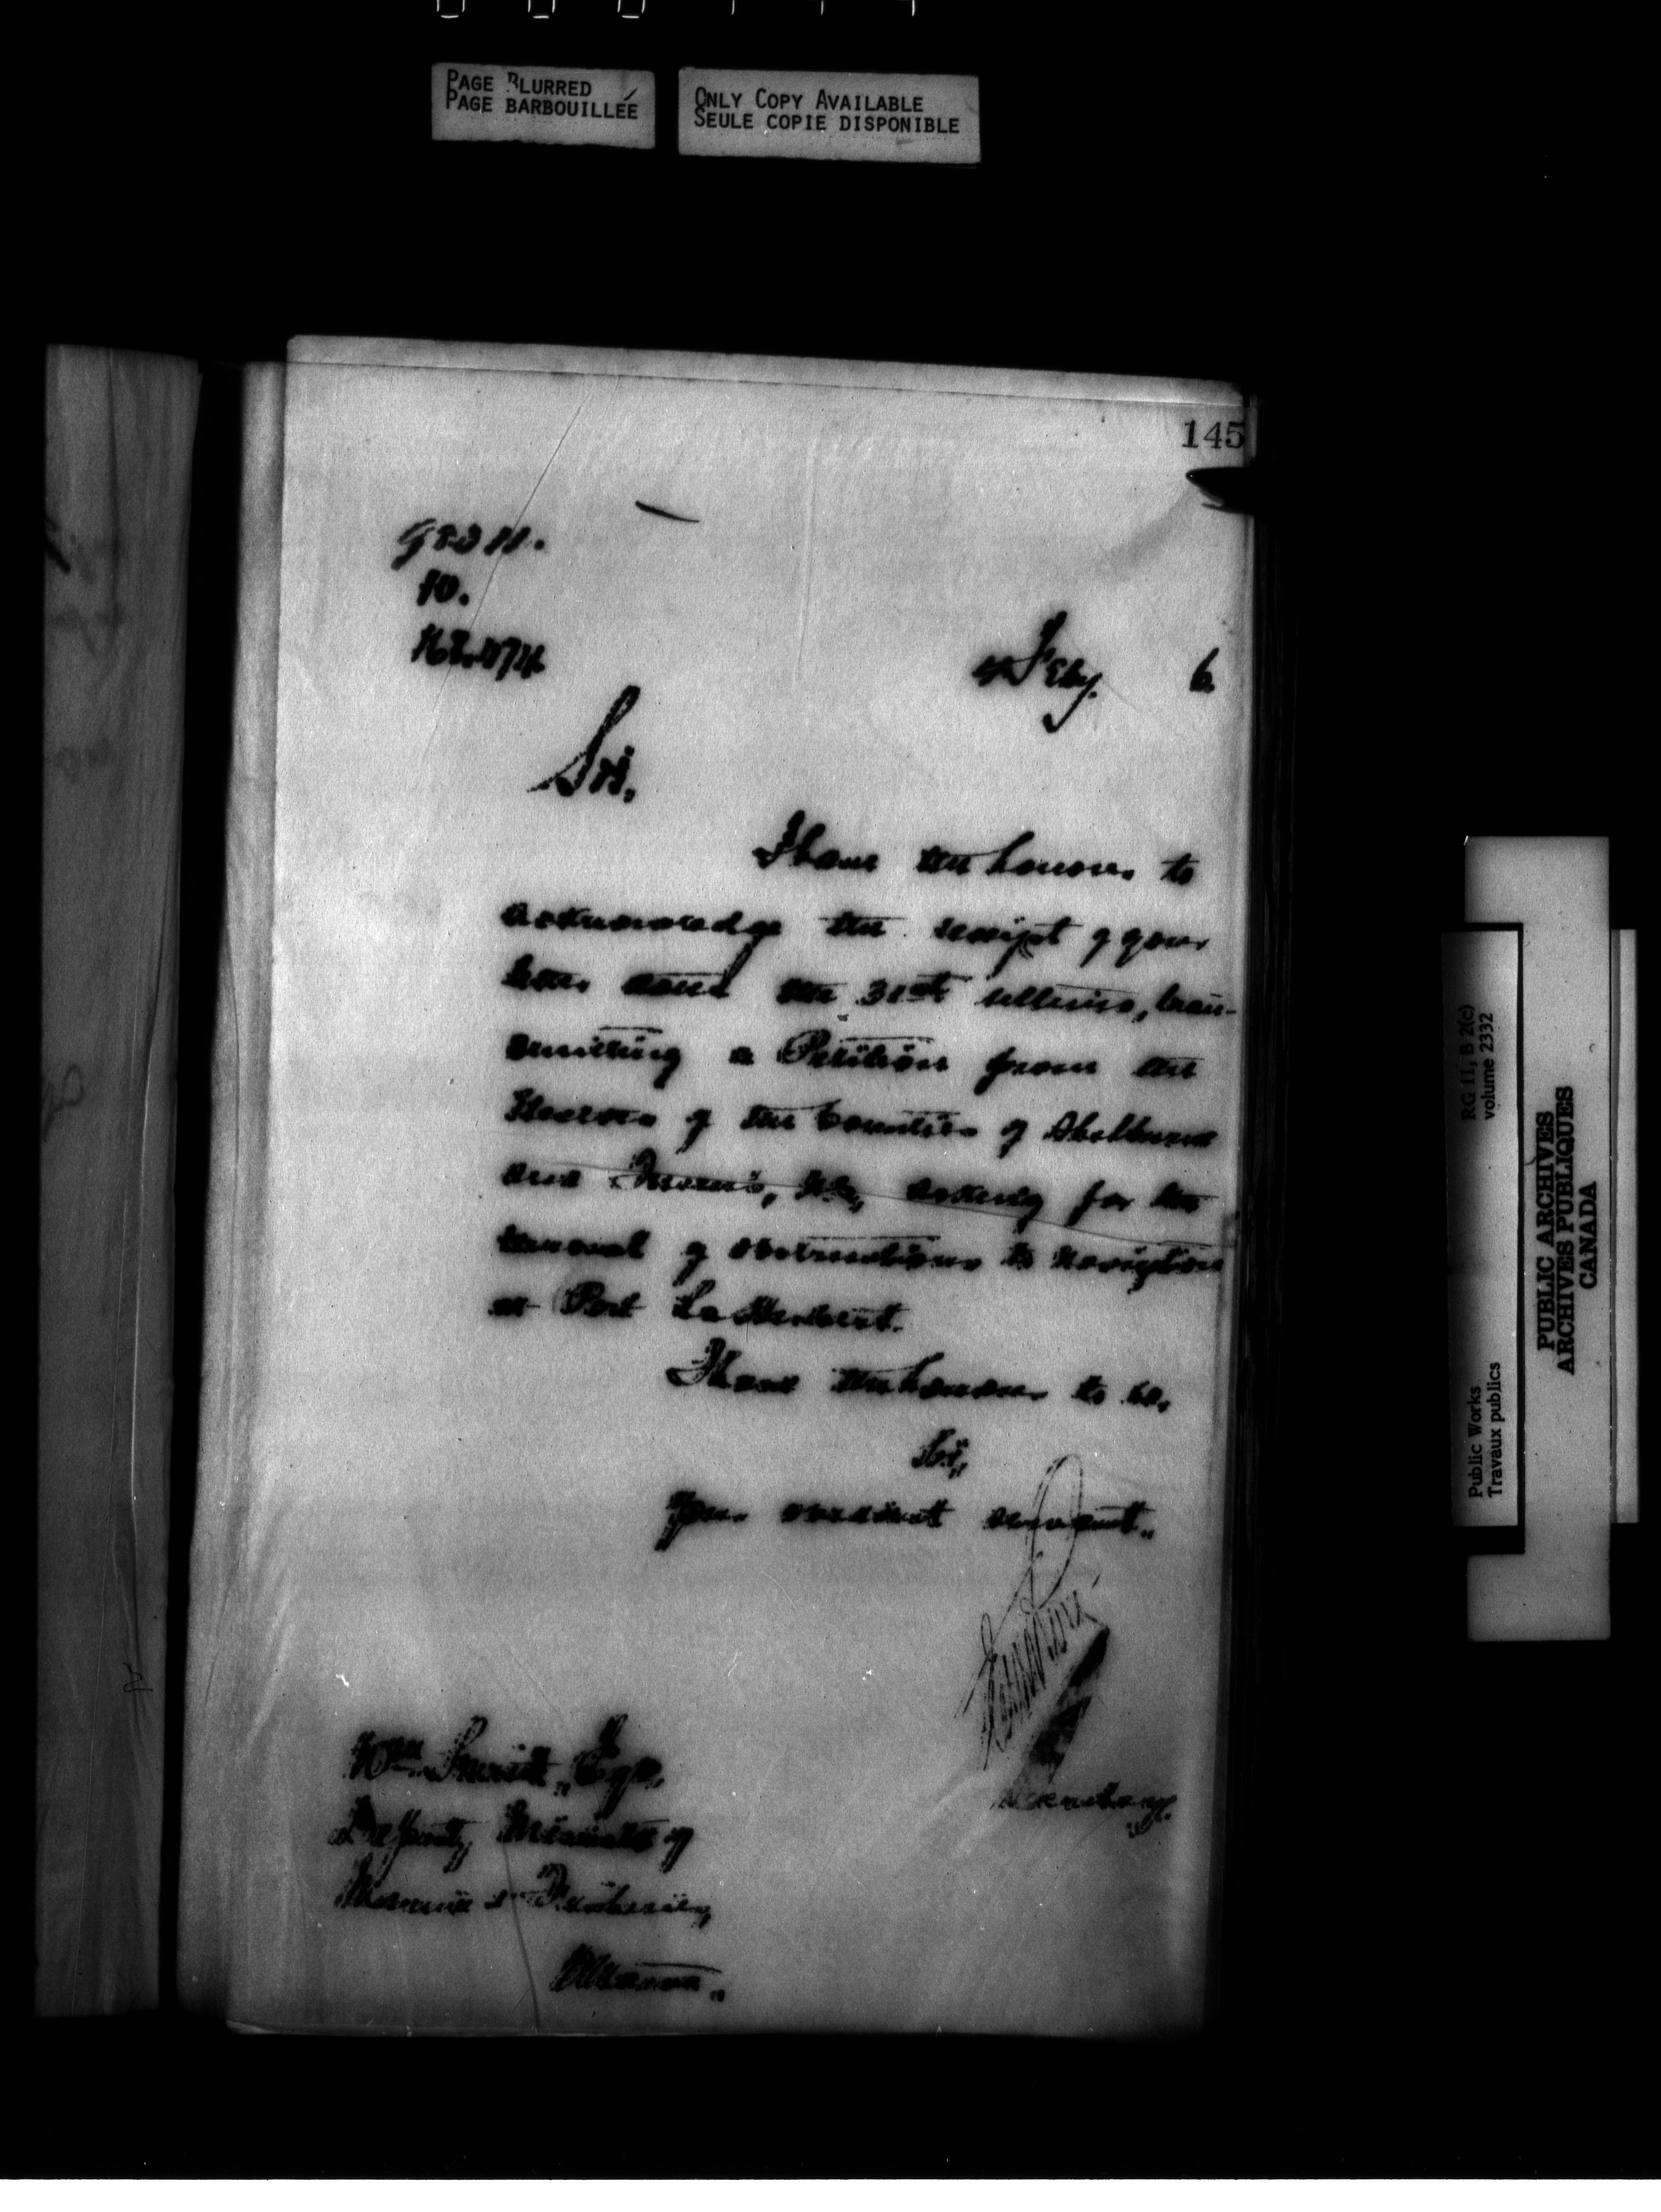 PAGE BLURRED
PAGE BARBOUILLÉE
ONLY COPY AVAILABLE
SEULE COPIE DISPONIBLE
145
10.
Feby. 6
Sir,
I have the honour to
acknowledge the receipt of your
letter dated the 31st ultimo, trans-
mitting a Petition from the
of the Counties of Shelburne
and Queen's, N.S., asking for the
removal of obstructions to navigation
at Port La Herbert.
I have the honour to be,
Sir,
Your obedient servant,
Secretary.
Wm Smith, Esq.,
Deputy Minister of
Marine & Fisheries,
Ottawa.
RG 11, B 2(c)
volume 2332
Public Works
Travaux publics
PUBLIC ARCHIVES
ARCHIVES PUBLIQUES
CANADA